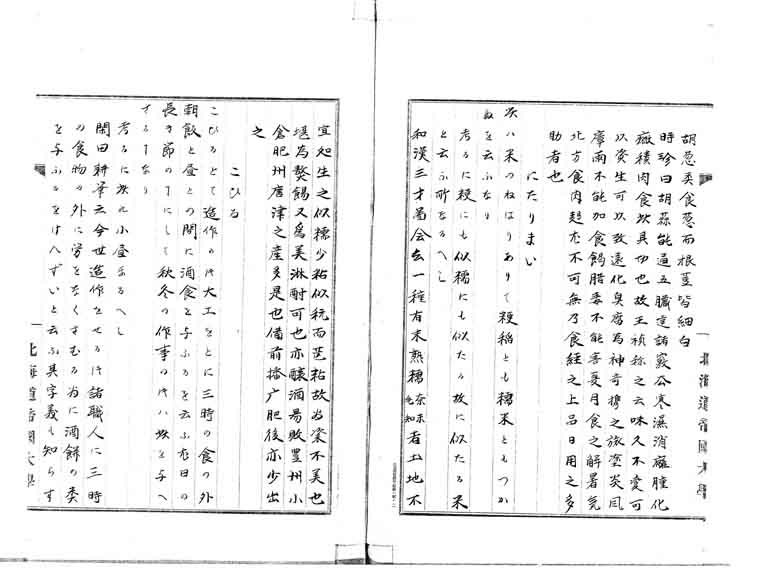 胡葱类食葱而根茎皆細白
時珍曰胡蒜能通五臓達諸竅去寒濕消癰腫化
癥積肉食此其功也故王禎称之云味久不変可
以資生可以致遠化臭腐為神奇携之旅塗炎風
瘴雨不能加食餲腊毒不能害夏月食之解暑気
北方食肉麪尤不可無乃食経之上品日用之多
助者也
にたりまい
次ハ米のねばりありて粳稲とも糯米ともつか
ぬを云ふなり
考るに粳にも似糯にも似たる故に似たる米
と云ふ所なるへし
和漢三才圖会云一種有末熟糯 者土地不
宜処生之似糯少粘似秔而甚粘故為粢不美也
堪為餈餳又為美淋酎可也亦醸酒易敗豊州小
倉肥州唐津之産多是也備前播广肥後亦少出
之
こひる
こひるとて造作の時大工をとに三時の食の外
朝飯と昼との間に酒食を与ふるを云ふ尤日の
長き節の事にして秋冬の作事の時ハ故を与へ
するなり
考るに次ハ小昼なるへし
閑田耕筆云今世造作をせるの時諸職人に三時
の食物の外に労をなくさむる為に酒餅の類
を与ふるをけんずいと云ふ其字義を知らず
北海道帝国大學
北海道帝國大學